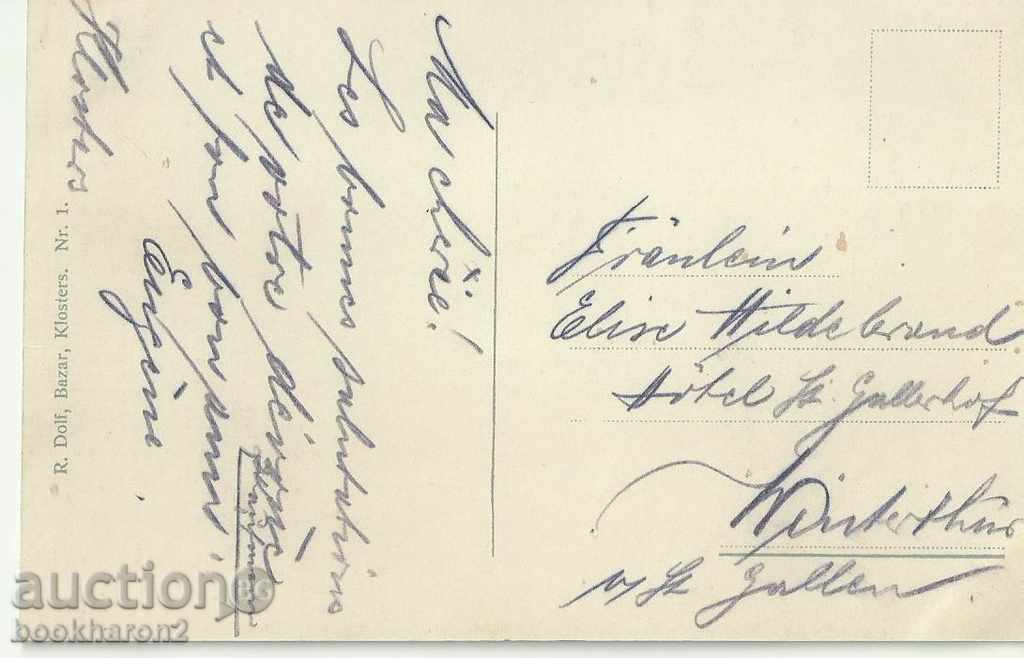 Ma chérie!
Les bonnes salutations
de votre
et son bon ami
Eugène
Klosters
R. Dolf, Bazar, Klosters. Nr. 1.
Fränlein
Elise Hildebrand
Hôtel St. Gallerhof
Winterthur
St. Gallen
auction
bookharon2